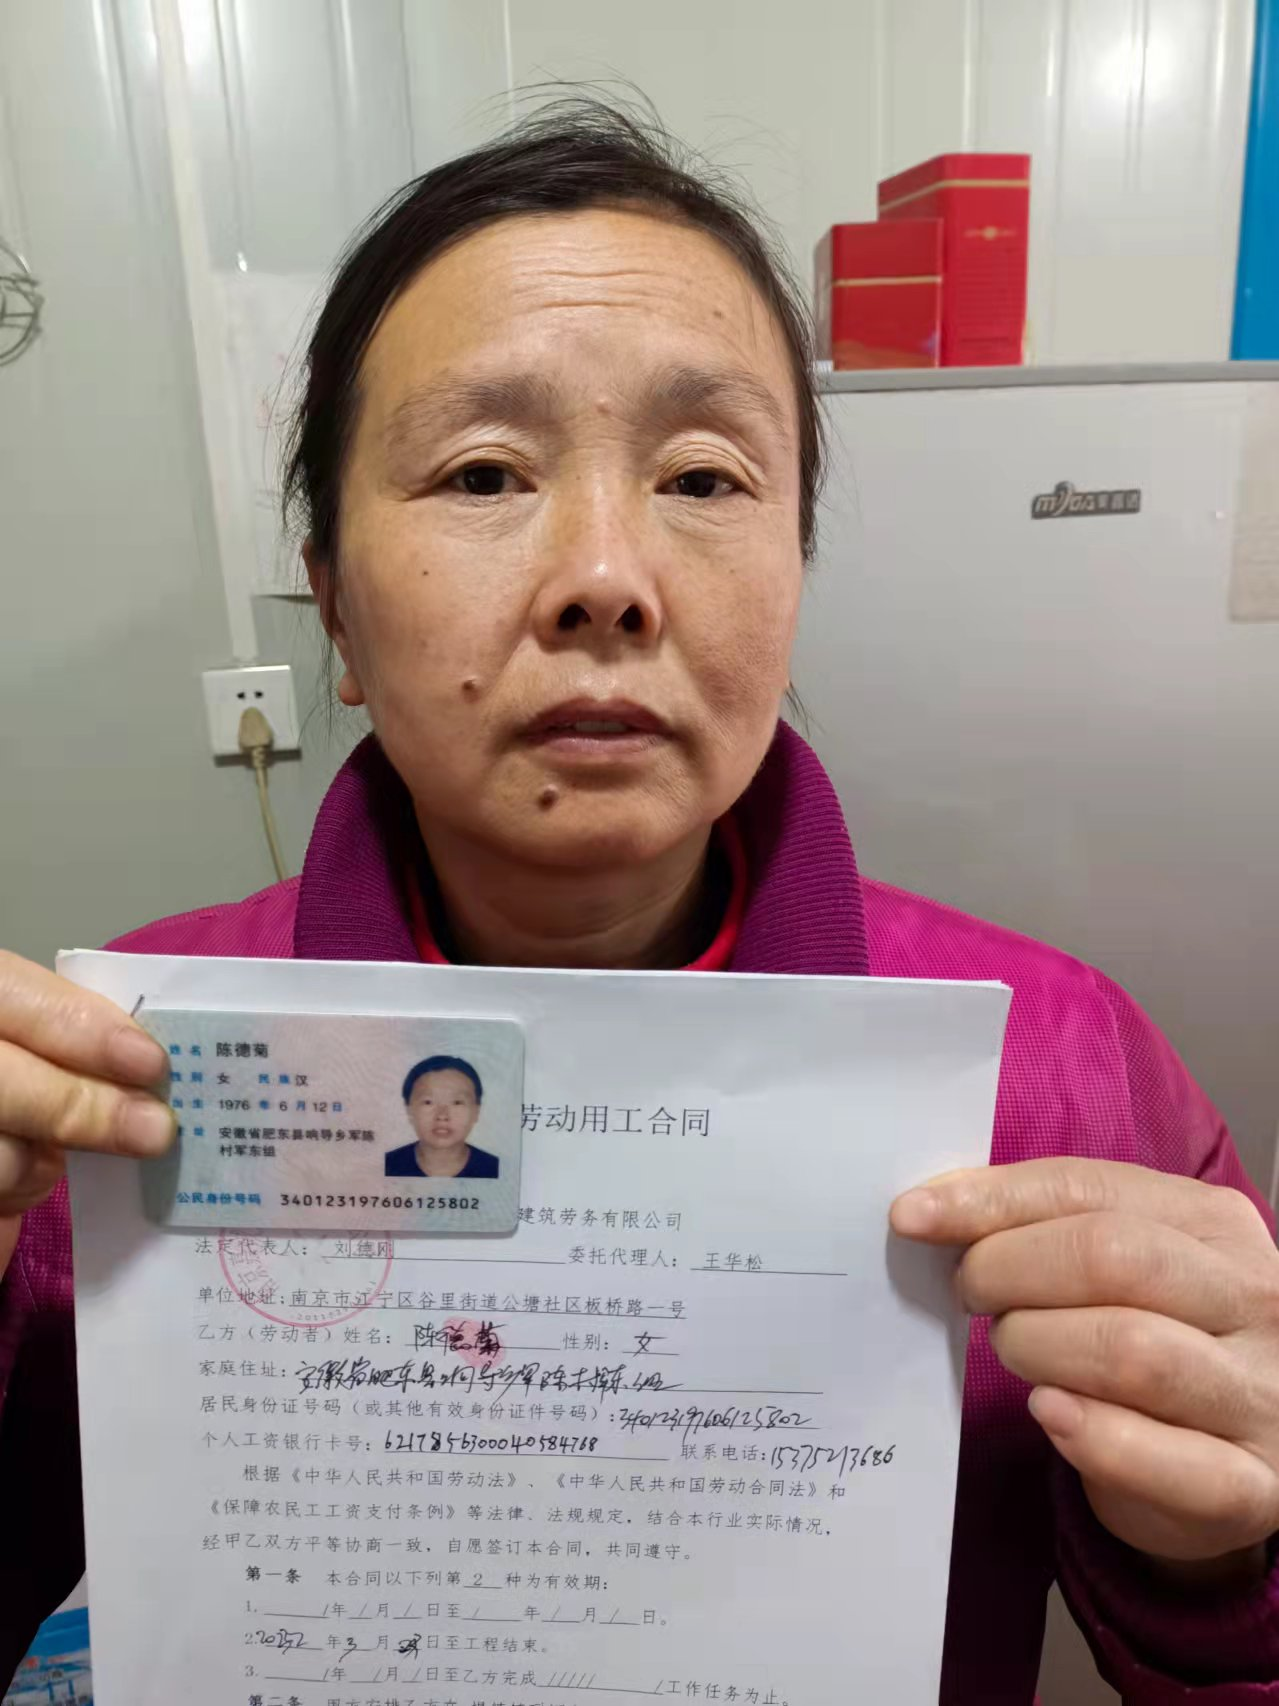 姓名 陈德菊
性别 女 民族 汉
出生 1976 年 6 月 12 日
住址 安徽省肥东县响导乡军陈
村军东组
公民身份号码 340123197606125802
劳动用工合同
建筑劳务有限公司
法定代表人: 刘德刚 委托代理人: 王华松
单位地址: 南京市江宁区谷里街道公塘社区板桥路一号
乙方(劳动者)姓名: 陈德菊 性别: 女
家庭住址: 安徽省肥东县响导乡军陈村军东组
居民身份证号码(或其他有效身份证件号码): 340123197606125802
个人工资银行卡号: 6217856300040584768 联系电话: 15375213686
根据《中华人民共和国劳动法》、《中华人民共和国劳动合同法》和
《保障农民工工资支付条例》等法律、法规规定,结合本行业实际情况,
经甲乙双方平等协商一致,自愿签订本合同,共同遵守。
第一条 本合同以下列第 2 种为有效期:
1. / 年 / 月 / 日至 / 年 / 月 / 日。
2. 年 3 月 日至工程结束。
3. / 年 / 月 / 日至乙方完成 ///// / 工作任务为止。
第二条